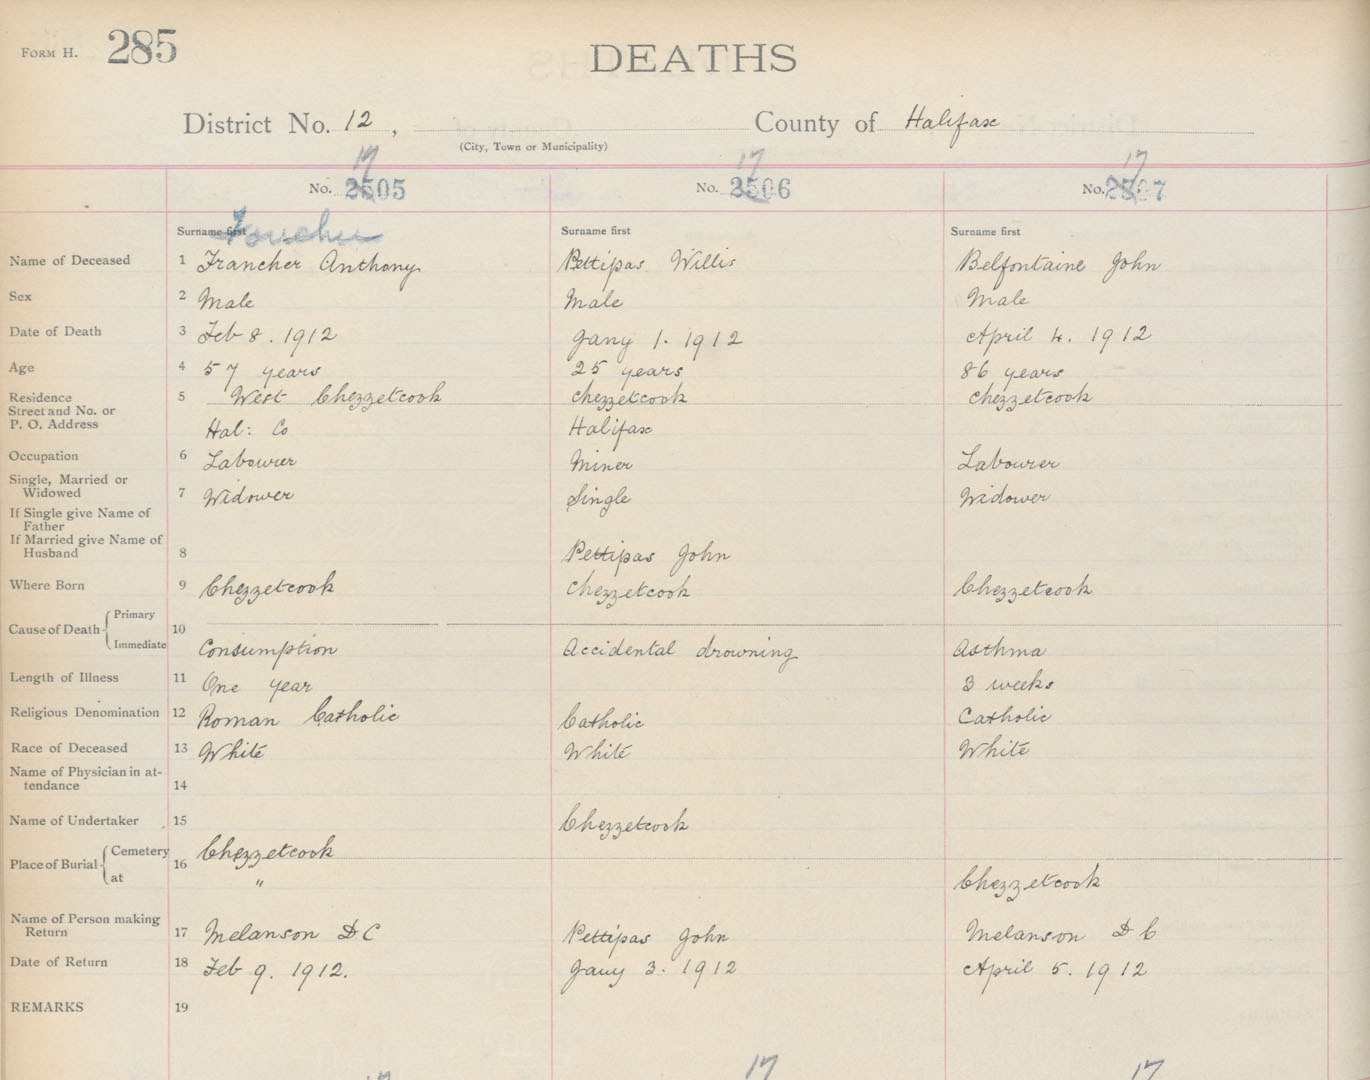 FORM H. 285
DEATHS
District No. 12, County of Halifax
(City, Town or Municipality)
17 17 17
No. 2505 No. 2506 No. 2507
Surname first Surname first Surname first
Name of Deceased 1 Francher Anthony Pettipas Willis Belfontaine John
Sex 2 Male Male Male
Date of Death 3 Feb 8. 1912 Jany 1. 1912 April 4. 1912
Age 4 57 years 25 years 86 years
Residence 5 West Chezzetcook Chezzetcook Chezzetcook
Street and No. or
P. O. Address Hal: Co Halifax
Occupation 6 Labourer Miner Labourer
Single, Married or
Widowed 7 Widower Single Widower
If Single give Name of
Father
If Married give Name of
Husband 8 Pettipas John
Where Born 9 Chezzetcook Chezzetcook Chezzetcook
Cause of Death 10 Primary
Immediate Consumption Accidental drowning Asthma
Length of Illness 11 One year 3 weeks
Religious Denomination 12 Roman Catholic Catholic Catholic
Race of Deceased 13 White White White
Name of Physician in at-
tendance 14
Name of Undertaker 15 Chezzetcook
Place of Burial 16 Cemetery Chezzetcook
at " Chezzetcook
Name of Person making
Return 17 Melanson D C Pettipas John Melanson D C
Date of Return 18 Feb 9. 1912. Jany 3. 1912 April 5. 1912
REMARKS 19
17 17 17